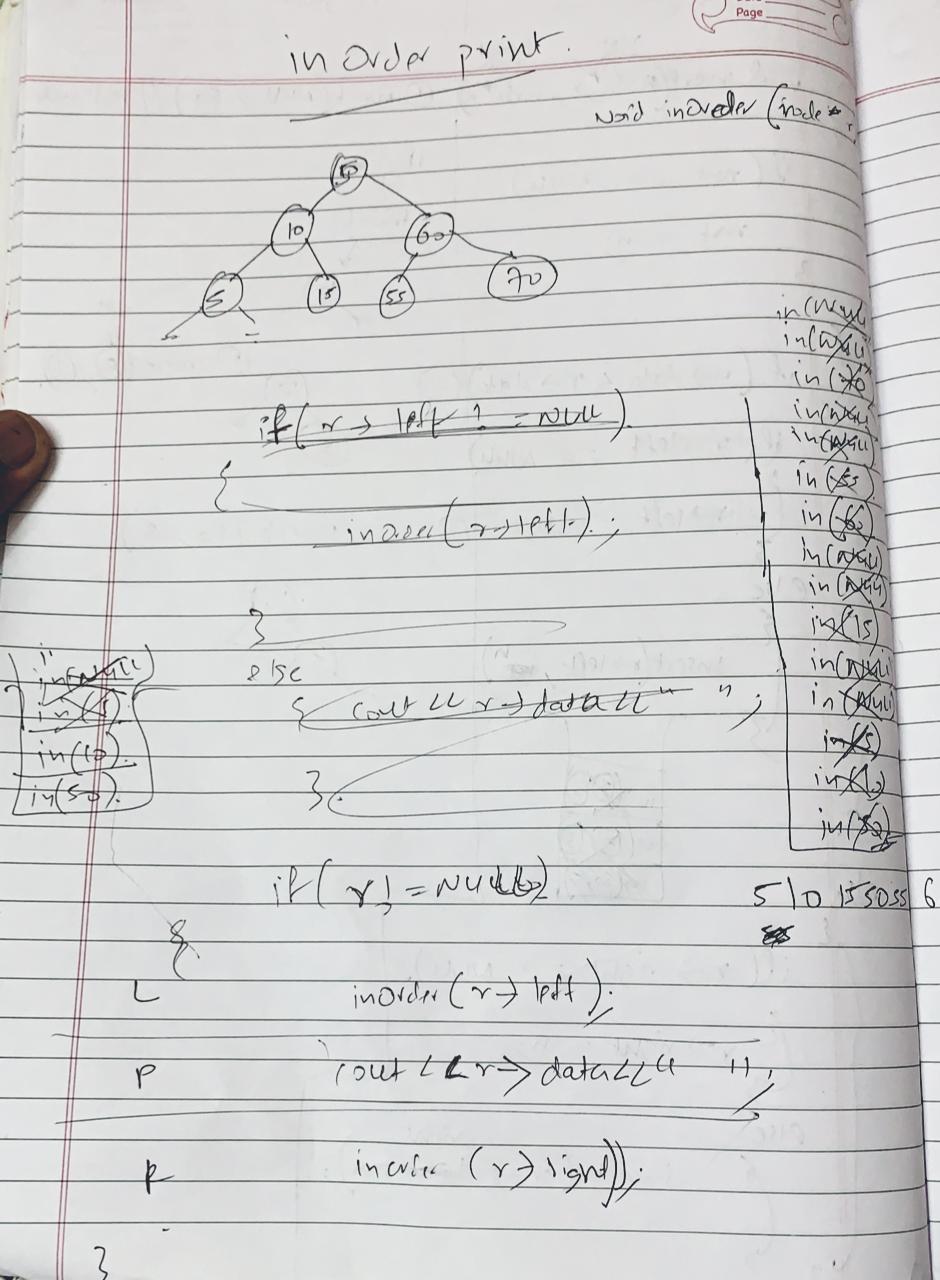 Page
inOrder print.
void inOreder (node *r
50
10 60
5 15 55 70
if(r→ left != NULL)
{
inOrder(r→left);
}
else
{ cout<< r→data<<" ";
}
in(NULL)
in(5)
in(10).
in(50).
in(NULL
in(NULL
in(70
in(NULL
in(NULL
in(55)
in(60)
in(NULL)
in(NULL)
in(15)
in(NULL)
in(NULL)
in(5)
in(10)
in(50)
if( r! = NULL)
5 10 15 50 55 6
{
L inOrder(r→ left);
P cout << r→ data<<" ";
R inorder (r→ right));
}